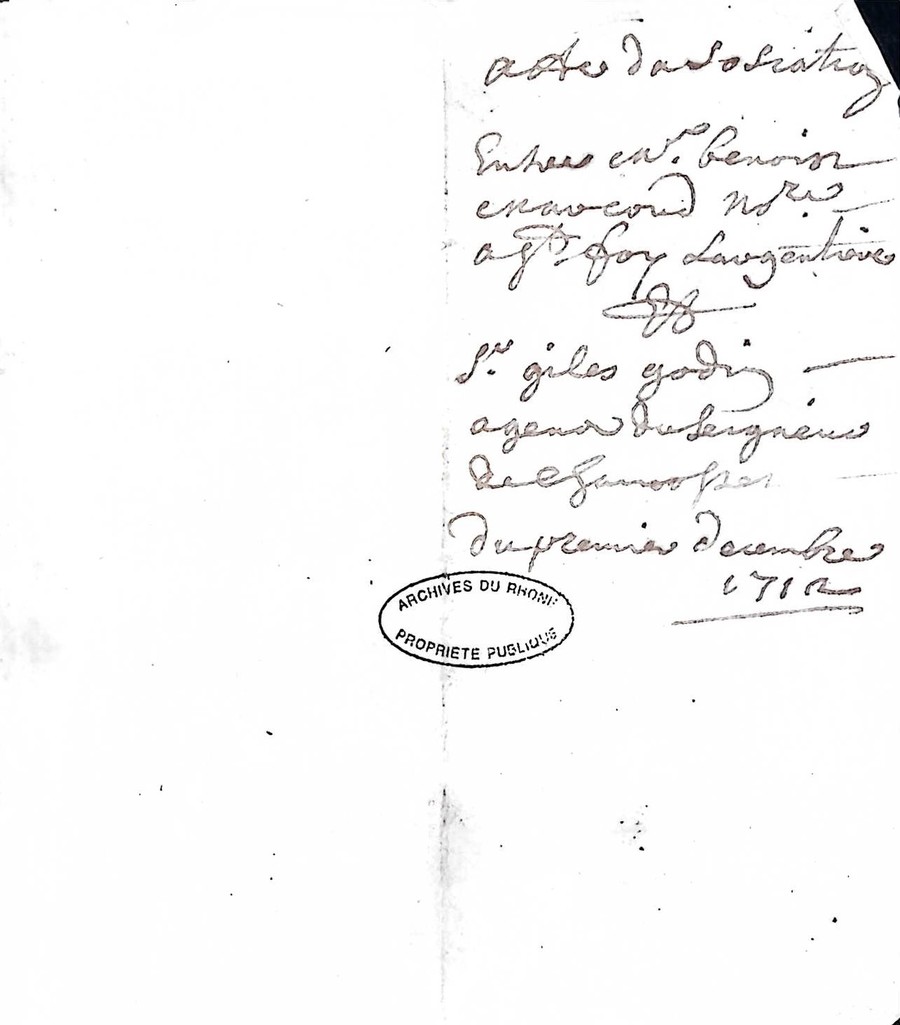 acte dasosiation
Entre me. benoist
no.re
a s.te foy Largentiere
&
S.r giles godin
agent du seigneur
de
du premier decembre
1712
ARCHIVES DU RHONE
PROPRIETE PUBLIQUE